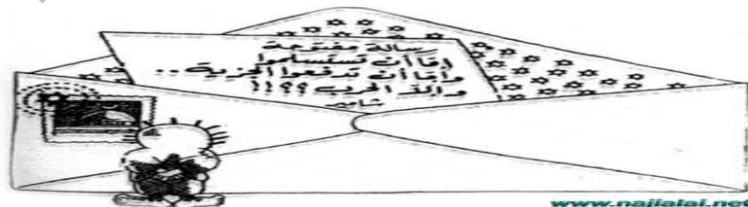 رسالة مفتوحة
إما أن تستسلموا
وإما أن تدفعوا الجزية..
والا الحرب ؟؟!!
www.najialali.net